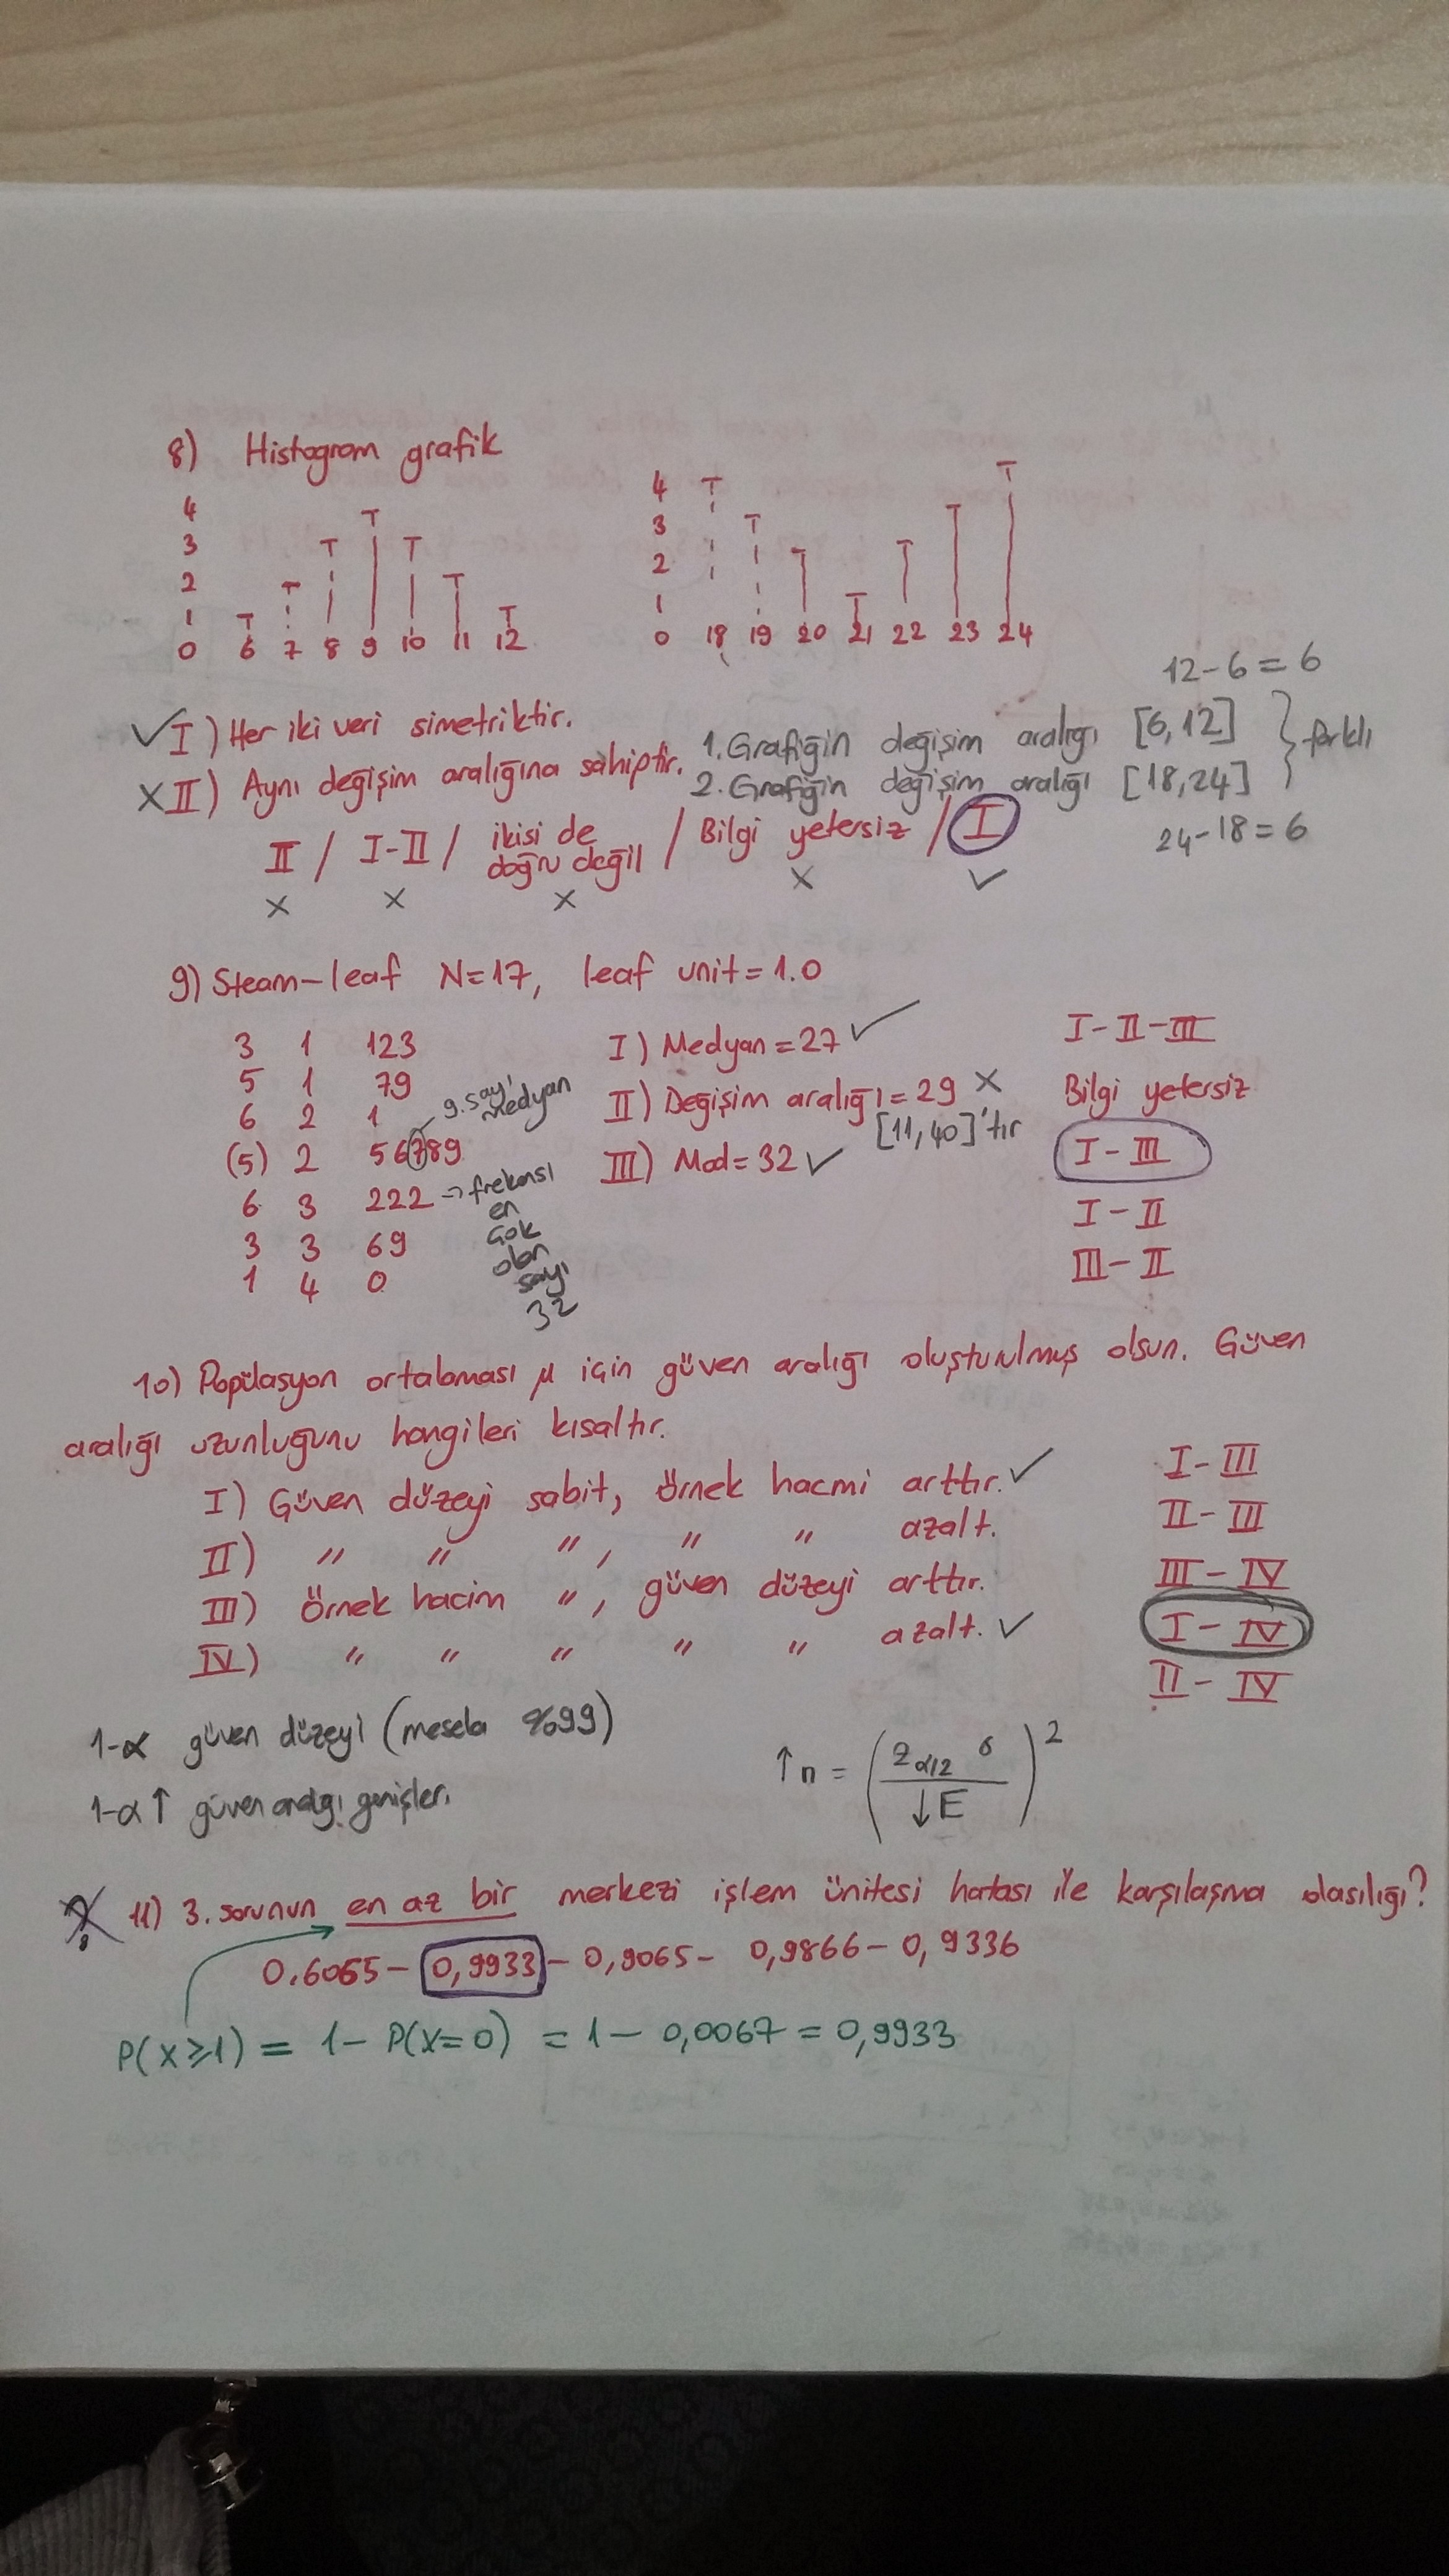 8) Histogram grafik
4 3 2 1 0
6 7 8 9 10 11 12
4 3 2 1 0
18 19 20 21 22 23 24
12-6=6
✓I) Her iki veri simetriktir.
XII) Aynı değişim aralığına sahiptir.
1. Grafiğin değişim aralığı [6,12]
2. Grafiğin değişim aralığı [18,24]
} farklı
24-18=6
II / I-II / ikisi de doğru değil / Bilgi yetersiz / I
X X X X ✓
9) Steam-leaf N=17, leaf unit=1.0
3 1 123
5 1 79
6 2 1
(5) 2 56789
6 3 222 → frekansı en çok olan sayı 32
3 3 69
1 4 0
9. sayı medyan
I) Medyan=27 ✓
II) Değişim aralığı=29 X
[11,40]'tır
III) Mod=32 ✓
I-II-III
Bilgi yetersiz
I-III
I-II
III-II
10) Popülasyon ortalaması μ için güven aralığı oluşturulmuş olsun. Güven
aralığı uzunluğunu hangileri kısaltır.
I) Güven düzeyi sabit, örnek hacmi arttır. ✓
II) " " ", " " azalt.
III) Örnek hacim ", güven düzeyi arttır.
IV) " " " " " azalt. ✓
I-III
II-III
III-IV
I-IV
II-IV
1-α güven düzeyi (mesela %99)
1-α↑ güven aralığı genişler.
↑n = (zα/2 σ / ↓E)²
11) 3. sorunun en az bir merkezi işlem ünitesi hatası ile karşılaşma olasılığı?
0.6065 - 0,9933 - 0,9065 - 0,9866 - 0,9336
P(x≥1) = 1- P(x=0) = 1- 0,0067 = 0,9933